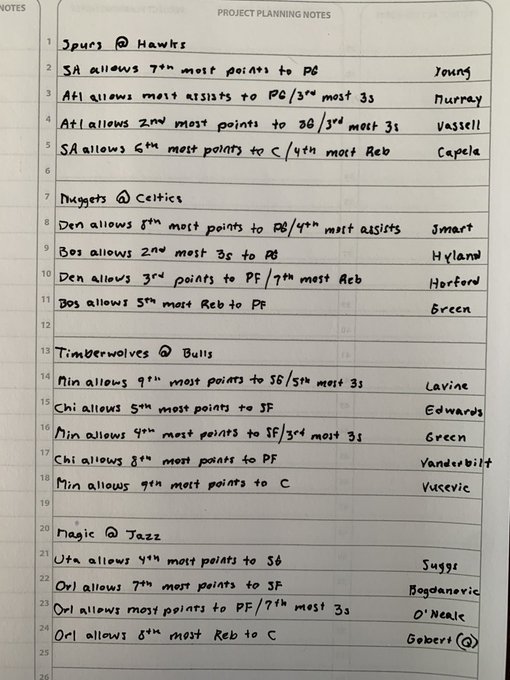 NOTES
PROJECT PLANNING NOTES
1 Spurs @ Hawks
2 SA allows 7th most points to PG Young
3 Atl allows most assists to PG/3rd most 3s Murray
4 Atl allows 2nd most points to SG/3rd most 3s Vassell
5 SA allows 6th most points to C/4th most Reb Capela
6
7 Nuggets @ Celtics
8 Den allows 8th most points to PG/4th most assists Smart
9 Bos allows 2nd most 3s to PG Hyland
10 Den allows 3rd points to PF/7th most Reb Horford
11 Bos allows 5th most Reb to PF Green
12
13 Timberwolves @ Bulls
14 Min allows 9th most points to SG/5th most 3s Lavine
15 Chi allows 5th most points to SF Edwards
16 Min allows 4th most points to SF/3rd most 3s Green
17 Chi allows 8th most points to PF Vanderbilt
18 Min allows 9th most points to C Vucevic
19
20 Magic @ Jazz
21 Uta allows 4th most points to SG Suggs
22 Orl allows 7th most points to SF Bogdanovic
23 Orl allows most points to PF/7th most 3s O'Neale
24 Orl allows 8th most Reb to C Gobert (Q)
25
26